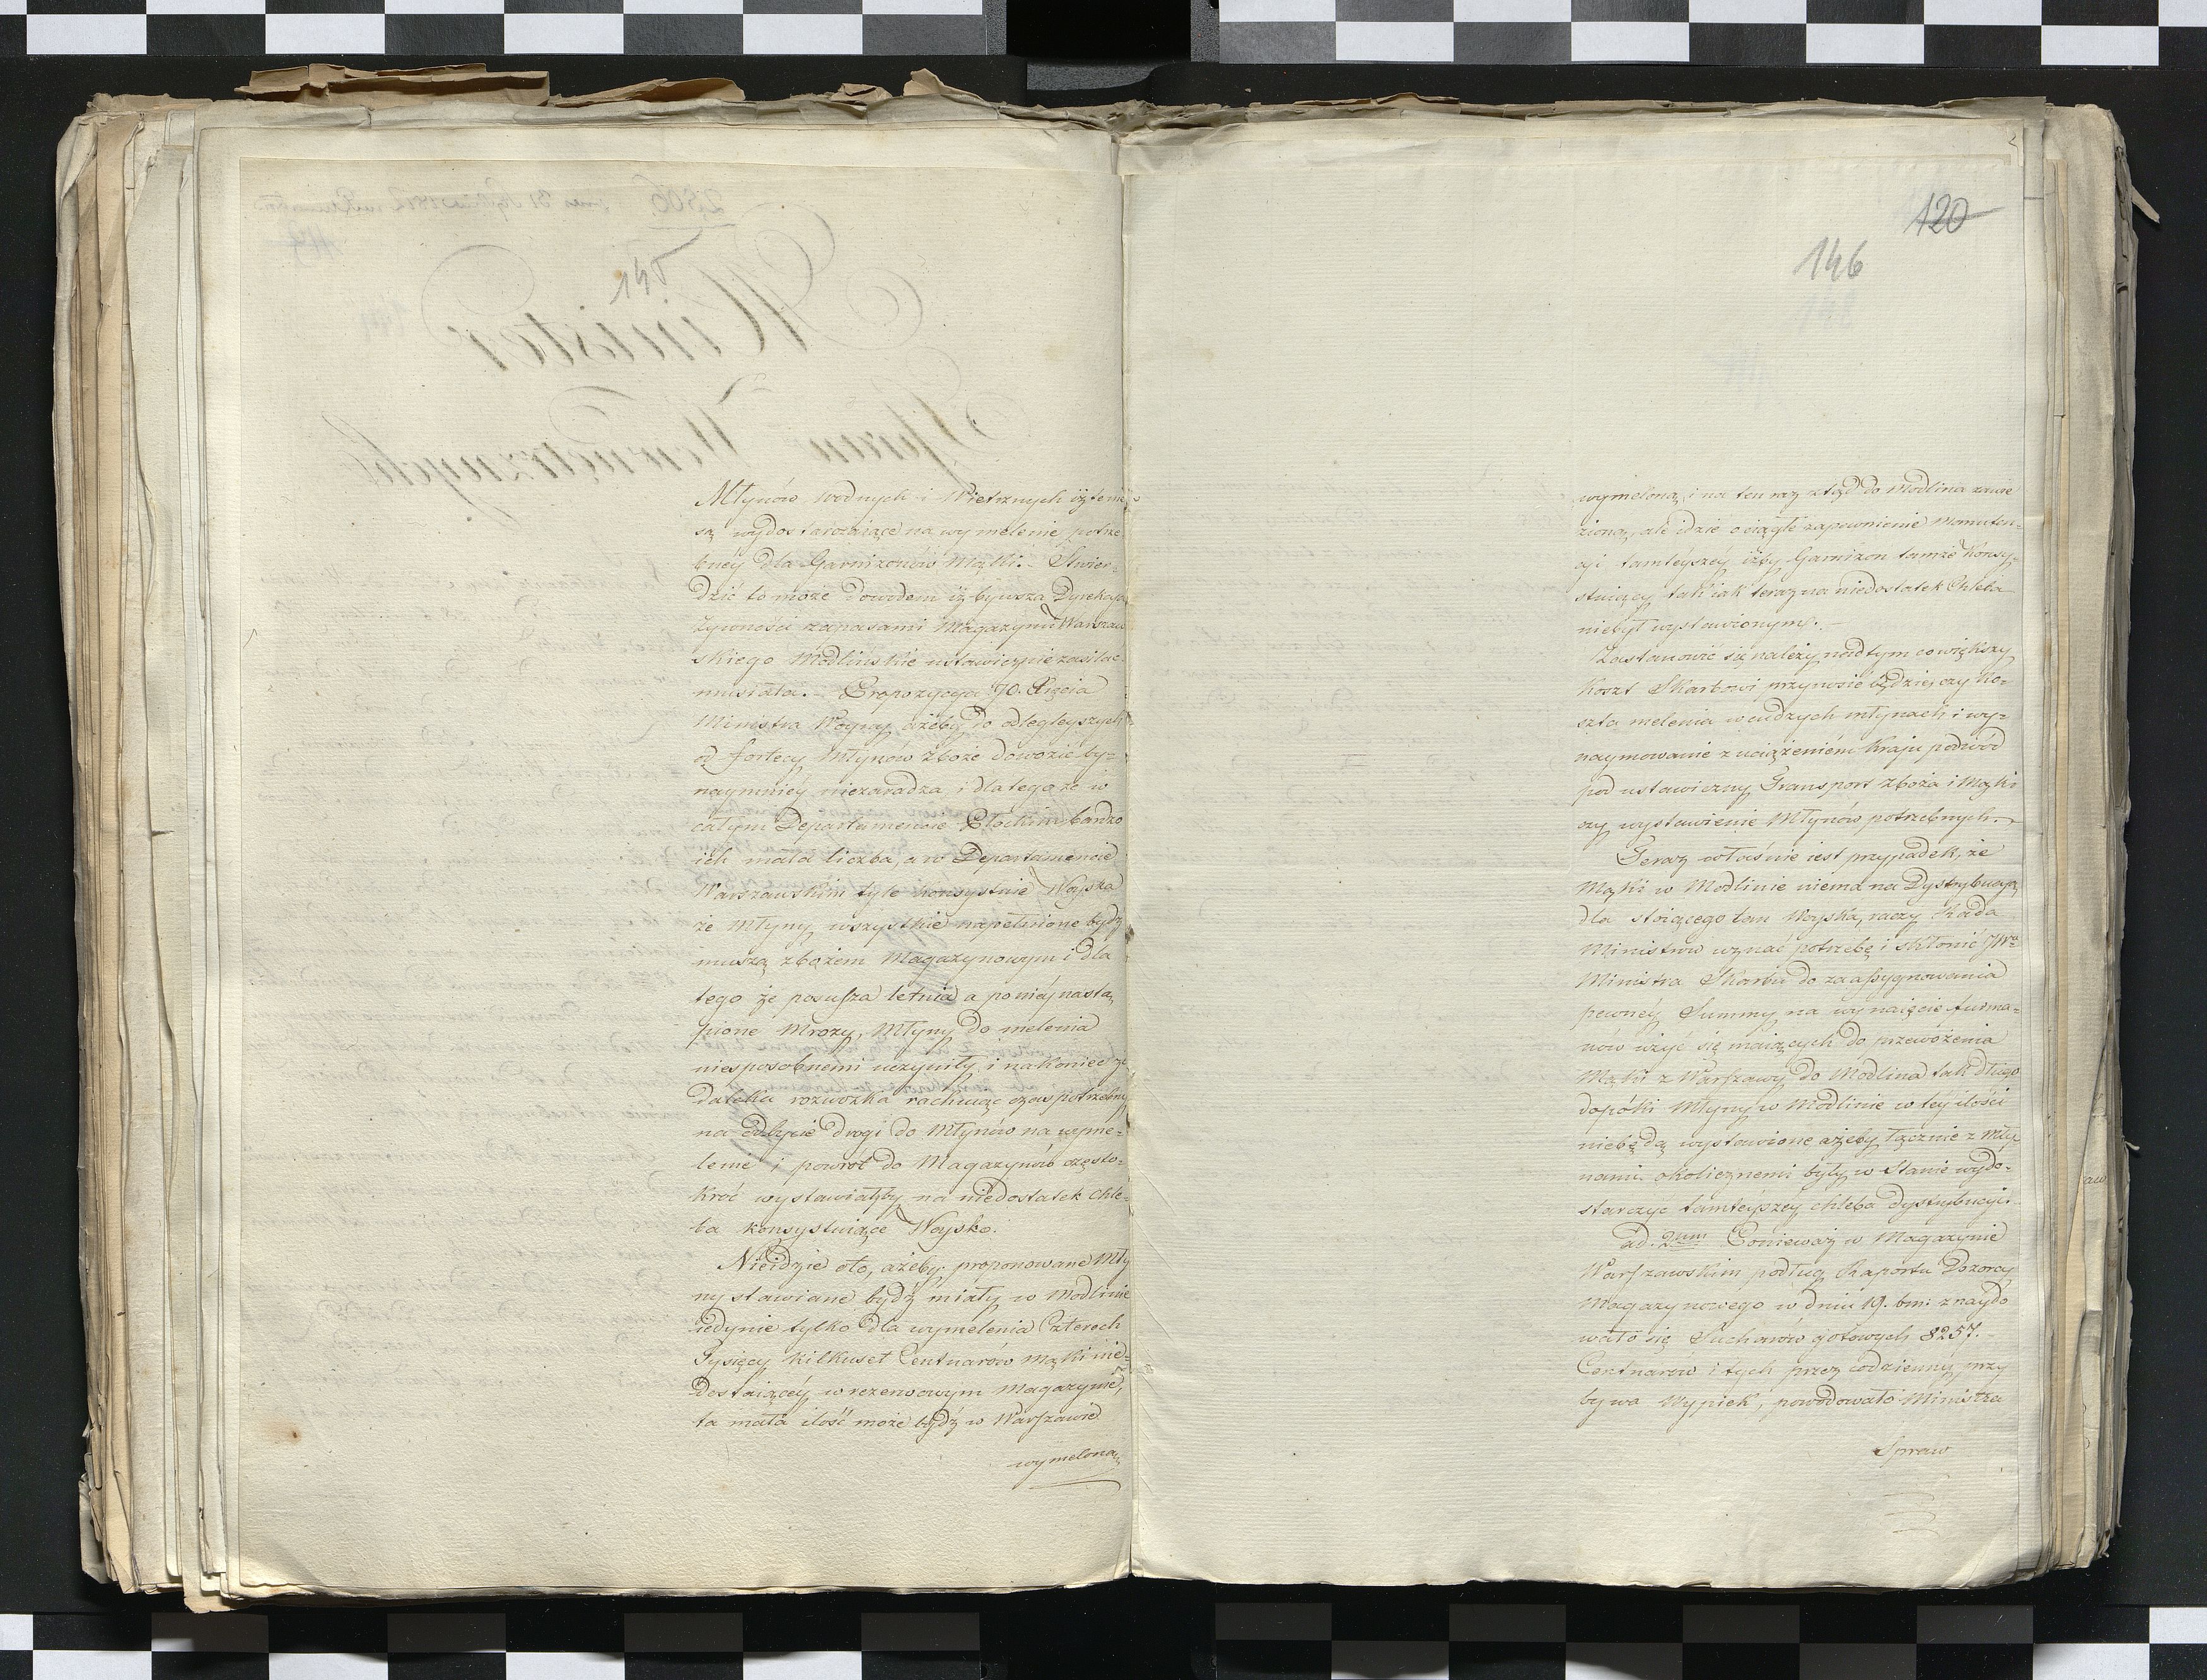 145
Młynów wodnych i Wietrznych iżtenie
są wydostarczaiące na wymelenie potrze
bney dla Garnizonów Mąki. - Stwier-
dzić to może dowodem iż bywsza Dyrekcya
żywności zapasami Magazynu Warszaw
skiego Modlińskie ustawicznie zasilać
musiała. - Propozycya JO. Xięcia
Ministra Woyny ażeby do odlegleyszych
od fortecy Młynów Zboże dowozić by-
naymniéy niezaradza i dla tego że w
całym Departamencie Płockim bardzo
ich mała liczba, a w Departamencie
Warszawskim tyle konsystuie Woyska
że Młyny wszystkie napełnione bydź
muszą zbożem Magazynowym i dla
tego że posusza letnia a po niéy nastą
pione Mrozy, Młyny do melenia
niesposobnemi uczyniły, i nakoniec że
daleka rozwózka rachuiąc czas potrzebny
na odbycie drogi do Młynów na wyme-
lenie i powrót do Magazynów często-
kroć wystawiałby na niedostatek Chle-
ba konsystuiące Woysko.
Nieidzie oto, ażeby proponowane Mły
ny stawiane bydź miały w Modlinie
iedynie tylko dla wymelenia Czterech
Tysięcy kilkuset Centnarów mąki nie-
dostaiącéy w rezerwowym Magazynie,
ta mała ilość może bydź w Warszawie
wymeloną
120
146
wymeloną, i na ten raz ztąd do Modlina zawie
zioną, ale idzie o ciągłe zapewnienie Manuten-
cyi tamteyszéy iżby Garnizon tamże konsy-
stuiący tak iak teraz na niedostatek Chleba
niebył wystawionym. -
Zastanowić się należy nad tym co większy
koszt Skarbowi przynosić będzie, czy ko-
szta melenia w cudzych młynach i wy-
naymowanie z uciążeniém kraju podwód
pod ustawiczny Transport zboża i Mąki
czy wystawienie Młynów potrzebnych. -
Teraz właśnie iest przypadek, że
Mąki w Modlinie niema na Dystrybucyą
dla stoiącego tam Woyska, raczy Rada
Ministrów uznać potrzebę i skłonić JWo
Ministra Skarbu do zaassygnowania
pewnéy Summy na wynaięcie furma-
now użyć się maiących do przewożenia
Mąki z Warszawy do Modlina tak długo
dopóki Młyny w Modlinie w tey ilości
niebędą wystawione ażeby łącznie z Mły
nami okolicznemi były w Stanie wydo-
starczyć tamteyszéy chleba dystrybucyi.
ad. 2um Ponieważ w Magazynie
Warszawskim podług Raportu Dozorcy
Magazynowego w dniu 19. bm: znaydo
wało się Sucharów gotowych 8257.-
Centnarów i tych przez codzienny przy
bywa Wypiek, powodowało Ministra
Spraw